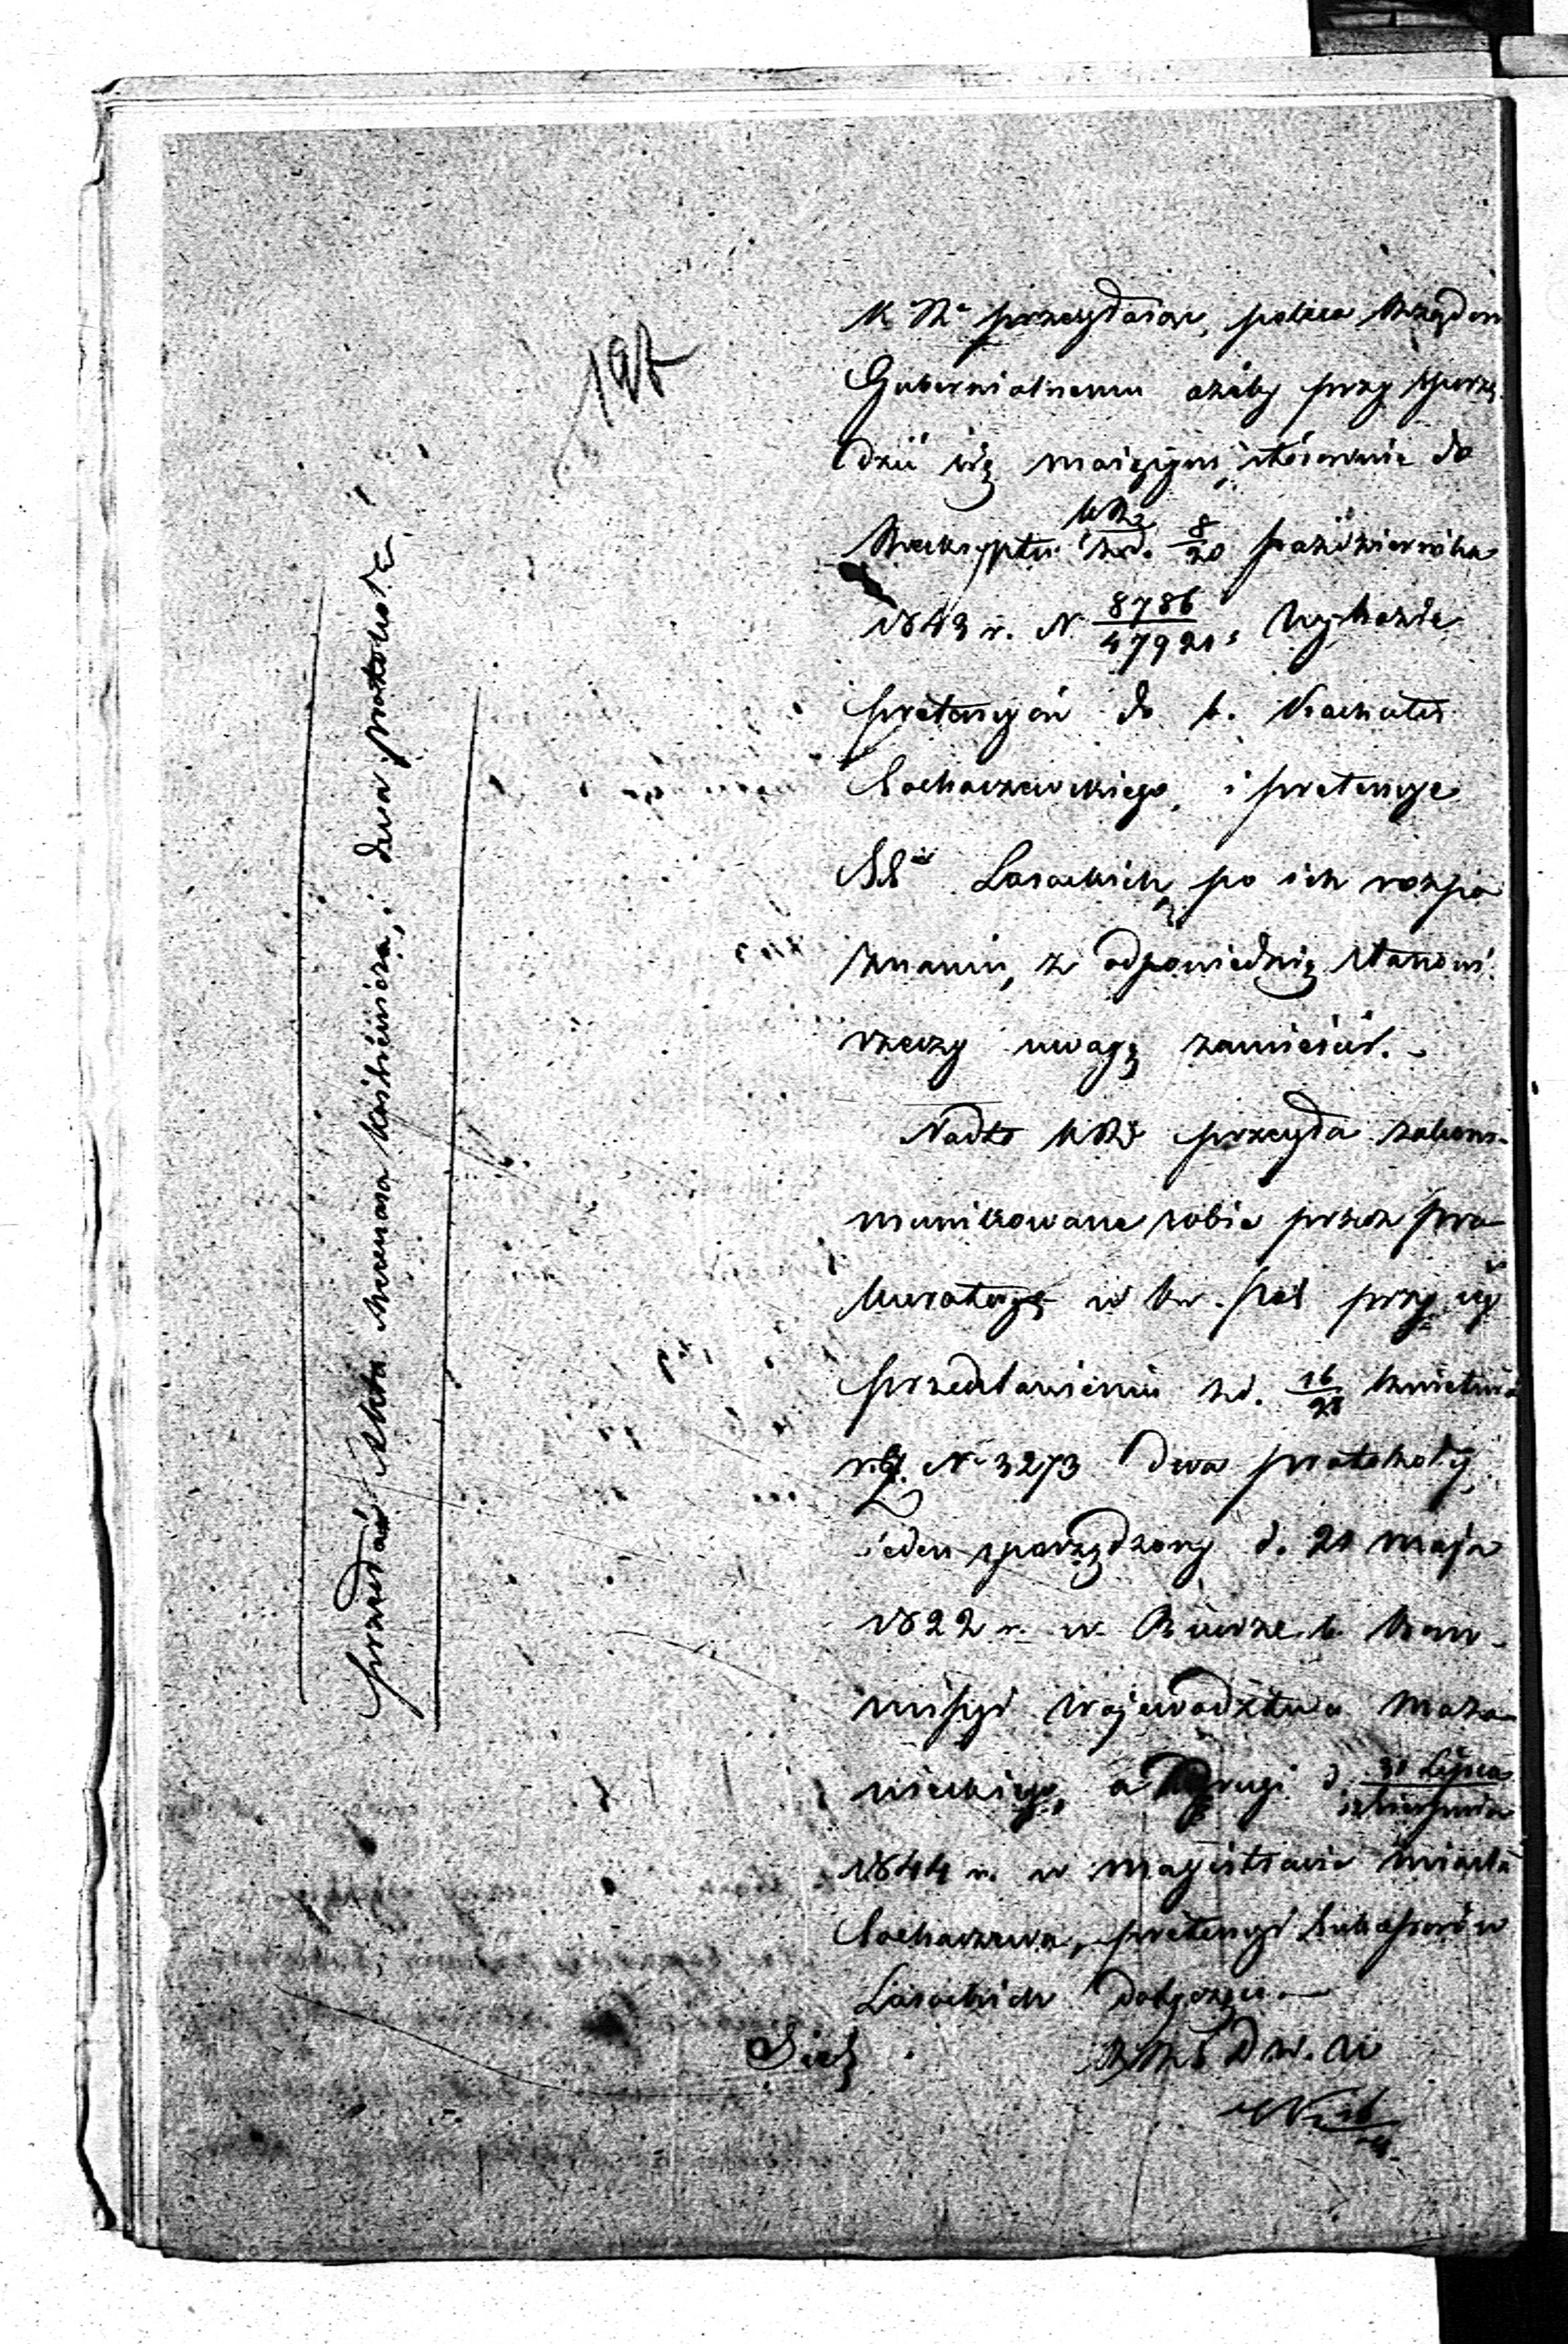 K R. przesyłaiąc, poleca Rządowi
Gubernialnemu ażeby przy sporzą
dzić się maiącym, stósownie do
Reskryptu KR z d. 8/20 października
1843 r. N 8786/47921, wykazie
pretensyów do b. Kachału
Sochaczewskiego, i pretensye
SSów Lasockich, po ich rozpo
znaniu, z odpowiednią stanowi
rzeczy uwagą zamieścił. -
Nadto KR przesyła zakom-
munikowane sobie przez Pro
kuratoryę w Kr. Pol przy iéy
przedstawieniu z d. 16/28 kwietnia
r. b. N 3273 dwa protokoły,
ieden sporządzony d. 21 maja
1822 r. w Biurze b. Kom-
missyi Województwa Mazo
wieckiego, a drugi d. 31 Lipca/12 Sierpnia
1844 r. w Magistracie miasta
Sochaczewa, pretensyi Sukcessorów
Lasockich dotyczące. -
D w. N
197
przesłać Akta i dwa protokoły